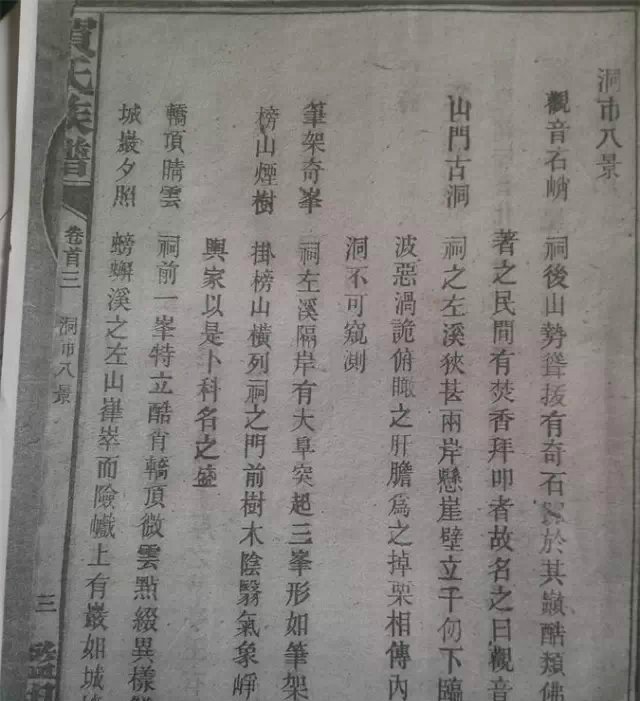 洞市八景
觀音石峭 祠後山勢聳拔有奇石 於其巔酷類佛
著之民間有焚香拜叩者故名之曰觀音
山門古洞 祠之左溪狹甚兩岸懸崖壁立千仞下臨
波惡渦詭俯瞰之肝膽為之掉栗相傳內
洞不可窺測
筆架奇峯 祠左溪隔岸有大阜突起三峯形如筆架
榜山煙樹 掛榜山橫列祠之門前樹木陰翳氣象崢
輿家以是卜科名之盛
轎頂晴雲 祠前一峯特立酷肖轎頂微雲點綴異樣
城巖夕照 螃蠏溪之左山嵂崒而險巇上有巖如城
賀氏族譜 卷首三 洞市八景 三